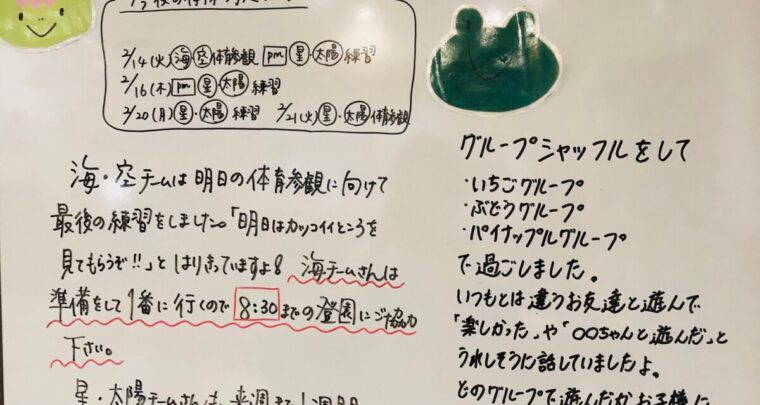 今後の体育の予定
2/14(火)海・空体育参観 pm 星・太陽練習
2/16(木) pm 星・太陽練習
2/20(月)星・太陽練習 2/21(火)星・太陽体育参観
海・空チームは明日の体育参観に向けて
最後の練習をしました。「明日はカッコイイところを
見てもらうぞ!!」とはりきっていますよ♪ 海チームさんは
準備をして1番に行くので8:30までの登園にご協力
下さい。
星・太陽チームさんも来週まで1週間
グループシャッフルをして
・いちごグループ
・ぶどうグループ
・パイナップルグループ
で過ごしました。
いつもとは違うお友達と遊んで
「楽しかった」や「〇〇ちゃんと遊んだ」と
うれしそうに話していましたよ。
どのグループで遊んだかお子様に